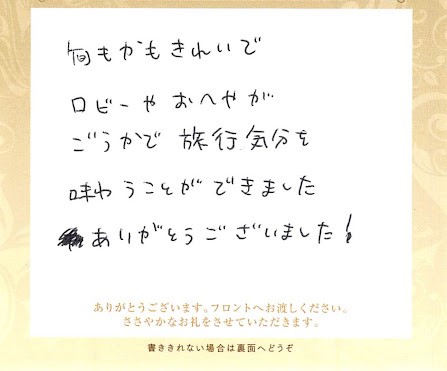 何もかもきれいで
ロビーやおへやが
ごうかで旅行気分を
味わうことができました
ありがとうございました!
ありがとうございます。フロントへお渡しください。
ささやかなお礼をさせていただきます。
書ききれない場合は裏面へどうぞ